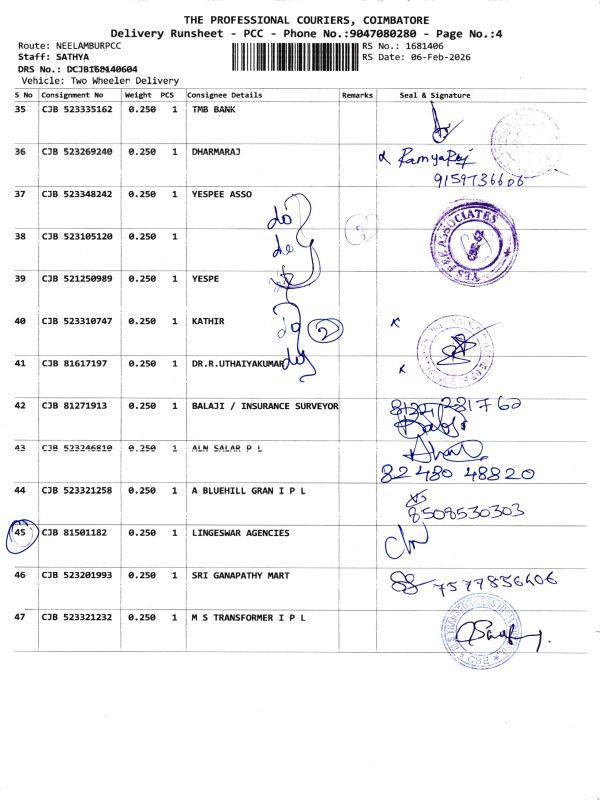 THE PROFESSIONAL COURIERS, COIMBATORE
Delivery Runsheet - PCC - Phone No.:9047080280 - Page No.:4
Route: NEELAMBURPCC RS No.: 1681406
Staff: SATHYA RS Date: 06-Feb-2026
DRS No.: DCJB168140604
Vehicle: Two Wheeler Delivery
S No Consignment No Weight PCS Consignee Details Remarks Seal & Signature
35 CJB 523335162 0.250 1 TMB BANK
36 CJB 523269240 0.250 1 DHARMARAJ RamyaRaj
9159736606
37 CJB 523348242 0.250 1 YESPEE ASSO
do
YES PEE ASSOCIATES
CBE-62
38 CJB 523105120 0.250 1 do
39 CJB 521250989 0.250 1 YESPE
40 CJB 523310747 0.250 1 KATHIR do 2 x
41 CJB 81617197 0.250 1 DR.R.UTHAIYAKUMAR x
42 CJB 81271913 0.250 1 BALAJI / INSURANCE SURVEYOR
43 CJB 523246810 0.250 1 ALN SALAR P L
82480 48820
44 CJB 523321258 0.250 1 A BLUEHILL GRAN I P L
8508530303
45 CJB 81501182 0.250 1 LINGESWAR AGENCIES
46 CJB 523201993 0.250 1 SRI GANAPATHY MART 7577836606
47 CJB 523321232 0.250 1 M S TRANSFORMER I P L
CBE